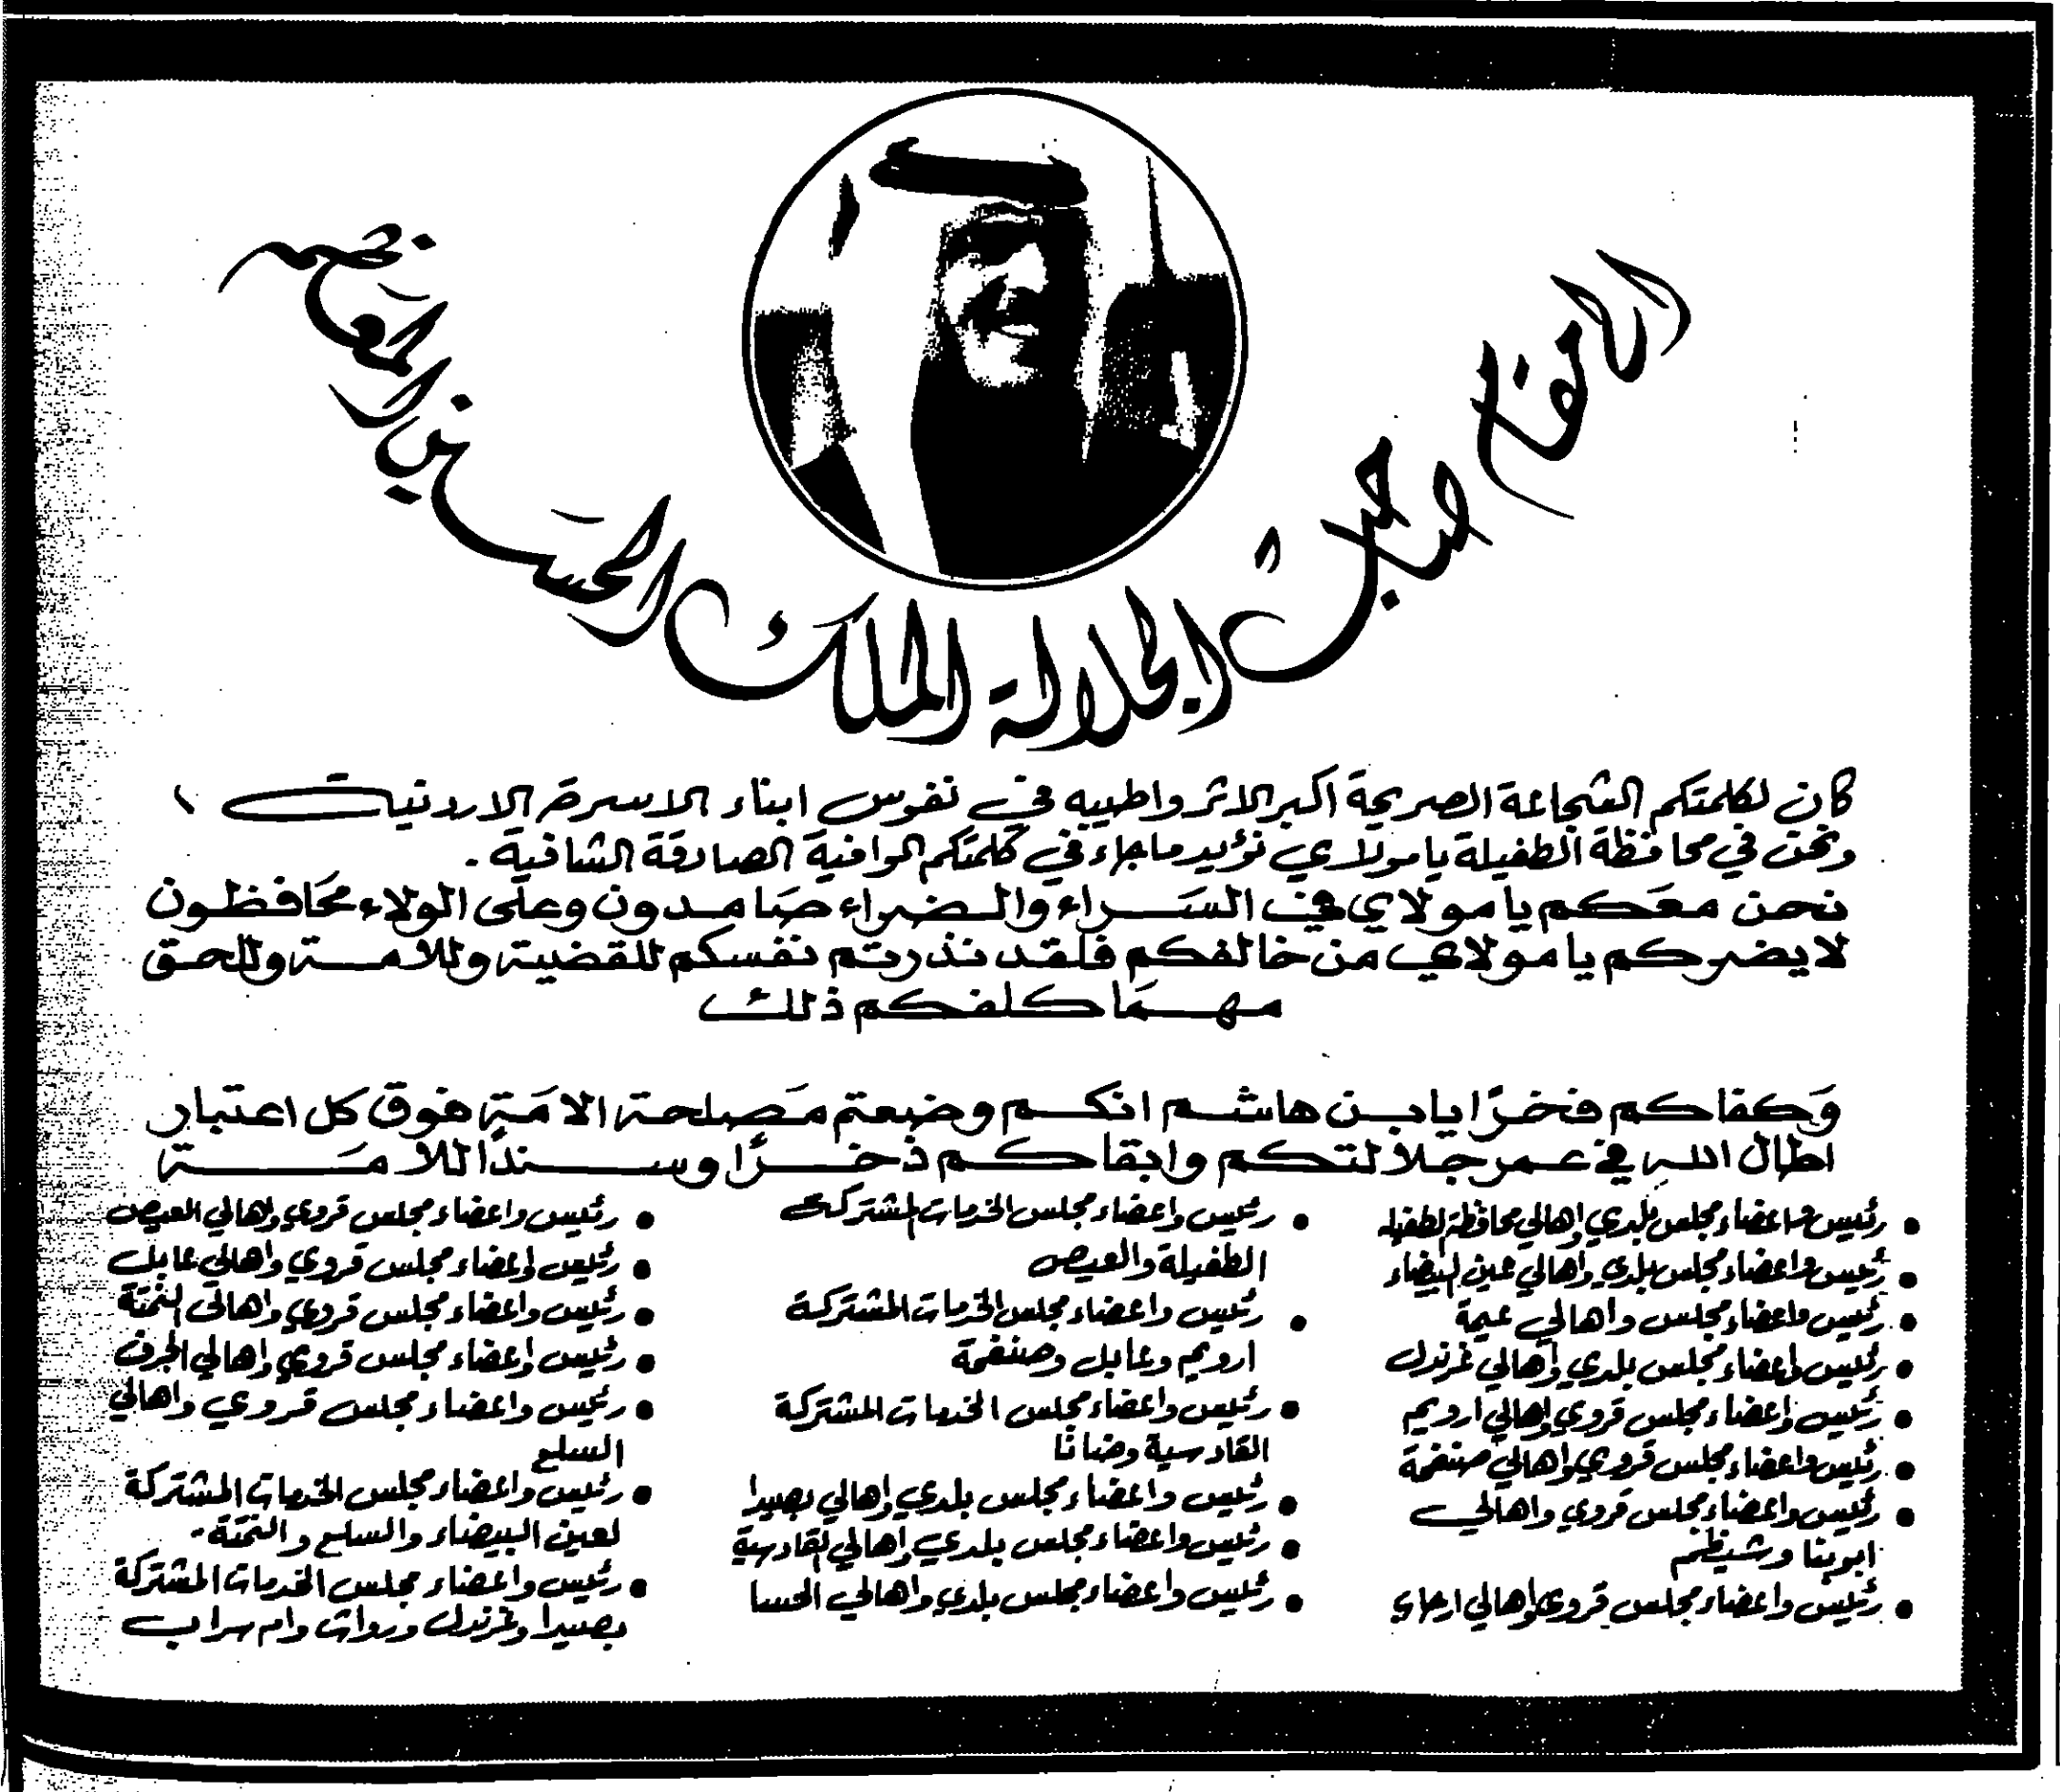 الى مقام صاحب الجلالة الملك الحسين المعظم
كان لكلمتكم الشجاعة الصريحة اكبر الاثر واطيبه في نفوس ابناء الاسرة الاردنية ،
ونحن في محافظة الطفيلة يا مولاي نؤيد ما جاء في كلمتكم الوافية الصادقة الشافية .
نحن معكم يا مولاي في السراء والضراء صامدون وعلى الولاء محافظون
لا يضركم يا مولاي من خالفكم فلقد نذرتم نفسكم للقضية وللامة وللحق
مهما كلفكم ذلك
وكفاكم فخرًا يا ابن هاشم انكم وضعتم مصلحة الامة فوق كل اعتبار
اطال الله في عمر جلالتكم وابقاكم ذخرًا وسندًا للامة
• رئيس واعضاء مجلس بلدي واهالي محافظة الطفيلة
• رئيس واعضاء مجلس بلدي واهالي عين البيضاء
• رئيس واعضاء مجلس واهالي عيمة
• رئيس واعضاء مجلس بلدي واهالي غرندل
• رئيس واعضاء مجلس قروي واهالي ارويم
• رئيس واعضاء مجلس قروي واهالي صنفحة
• رئيس واعضاء مجلس قروي واهالي
ابو بنا وشيظم
• رئيس واعضاء مجلس قروي واهالي ارحاب
• رئيس واعضاء مجلس الخدمات المشتركة
الطفيلة والعيص
• رئيس واعضاء مجلس الخدمات المشتركة
ارويم وعابل وصنفحة
• رئيس واعضاء مجلس الخدمات المشتركة
القادسية وضانا
• رئيس واعضاء مجلس بلدي واهالي بصيرا
• رئيس واعضاء مجلس بلدي واهالي القادسية
• رئيس واعضاء مجلس بلدي واهالي الحسا
• رئيس واعضاء مجلس قروي واهالي العيص
• رئيس واعضاء مجلس قروي واهالي عابل
• رئيس واعضاء مجلس قروي واهالي النمتة
• رئيس واعضاء مجلس قروي واهالي الجرف
• رئيس واعضاء مجلس قروي واهالي
السلع
• رئيس واعضاء مجلس الخدمات المشتركة
لعين البيضاء والسلع والنمتة .
• رئيس واعضاء مجلس الخدمات المشتركة
بصيرا وغرندل ورواث وام سراب